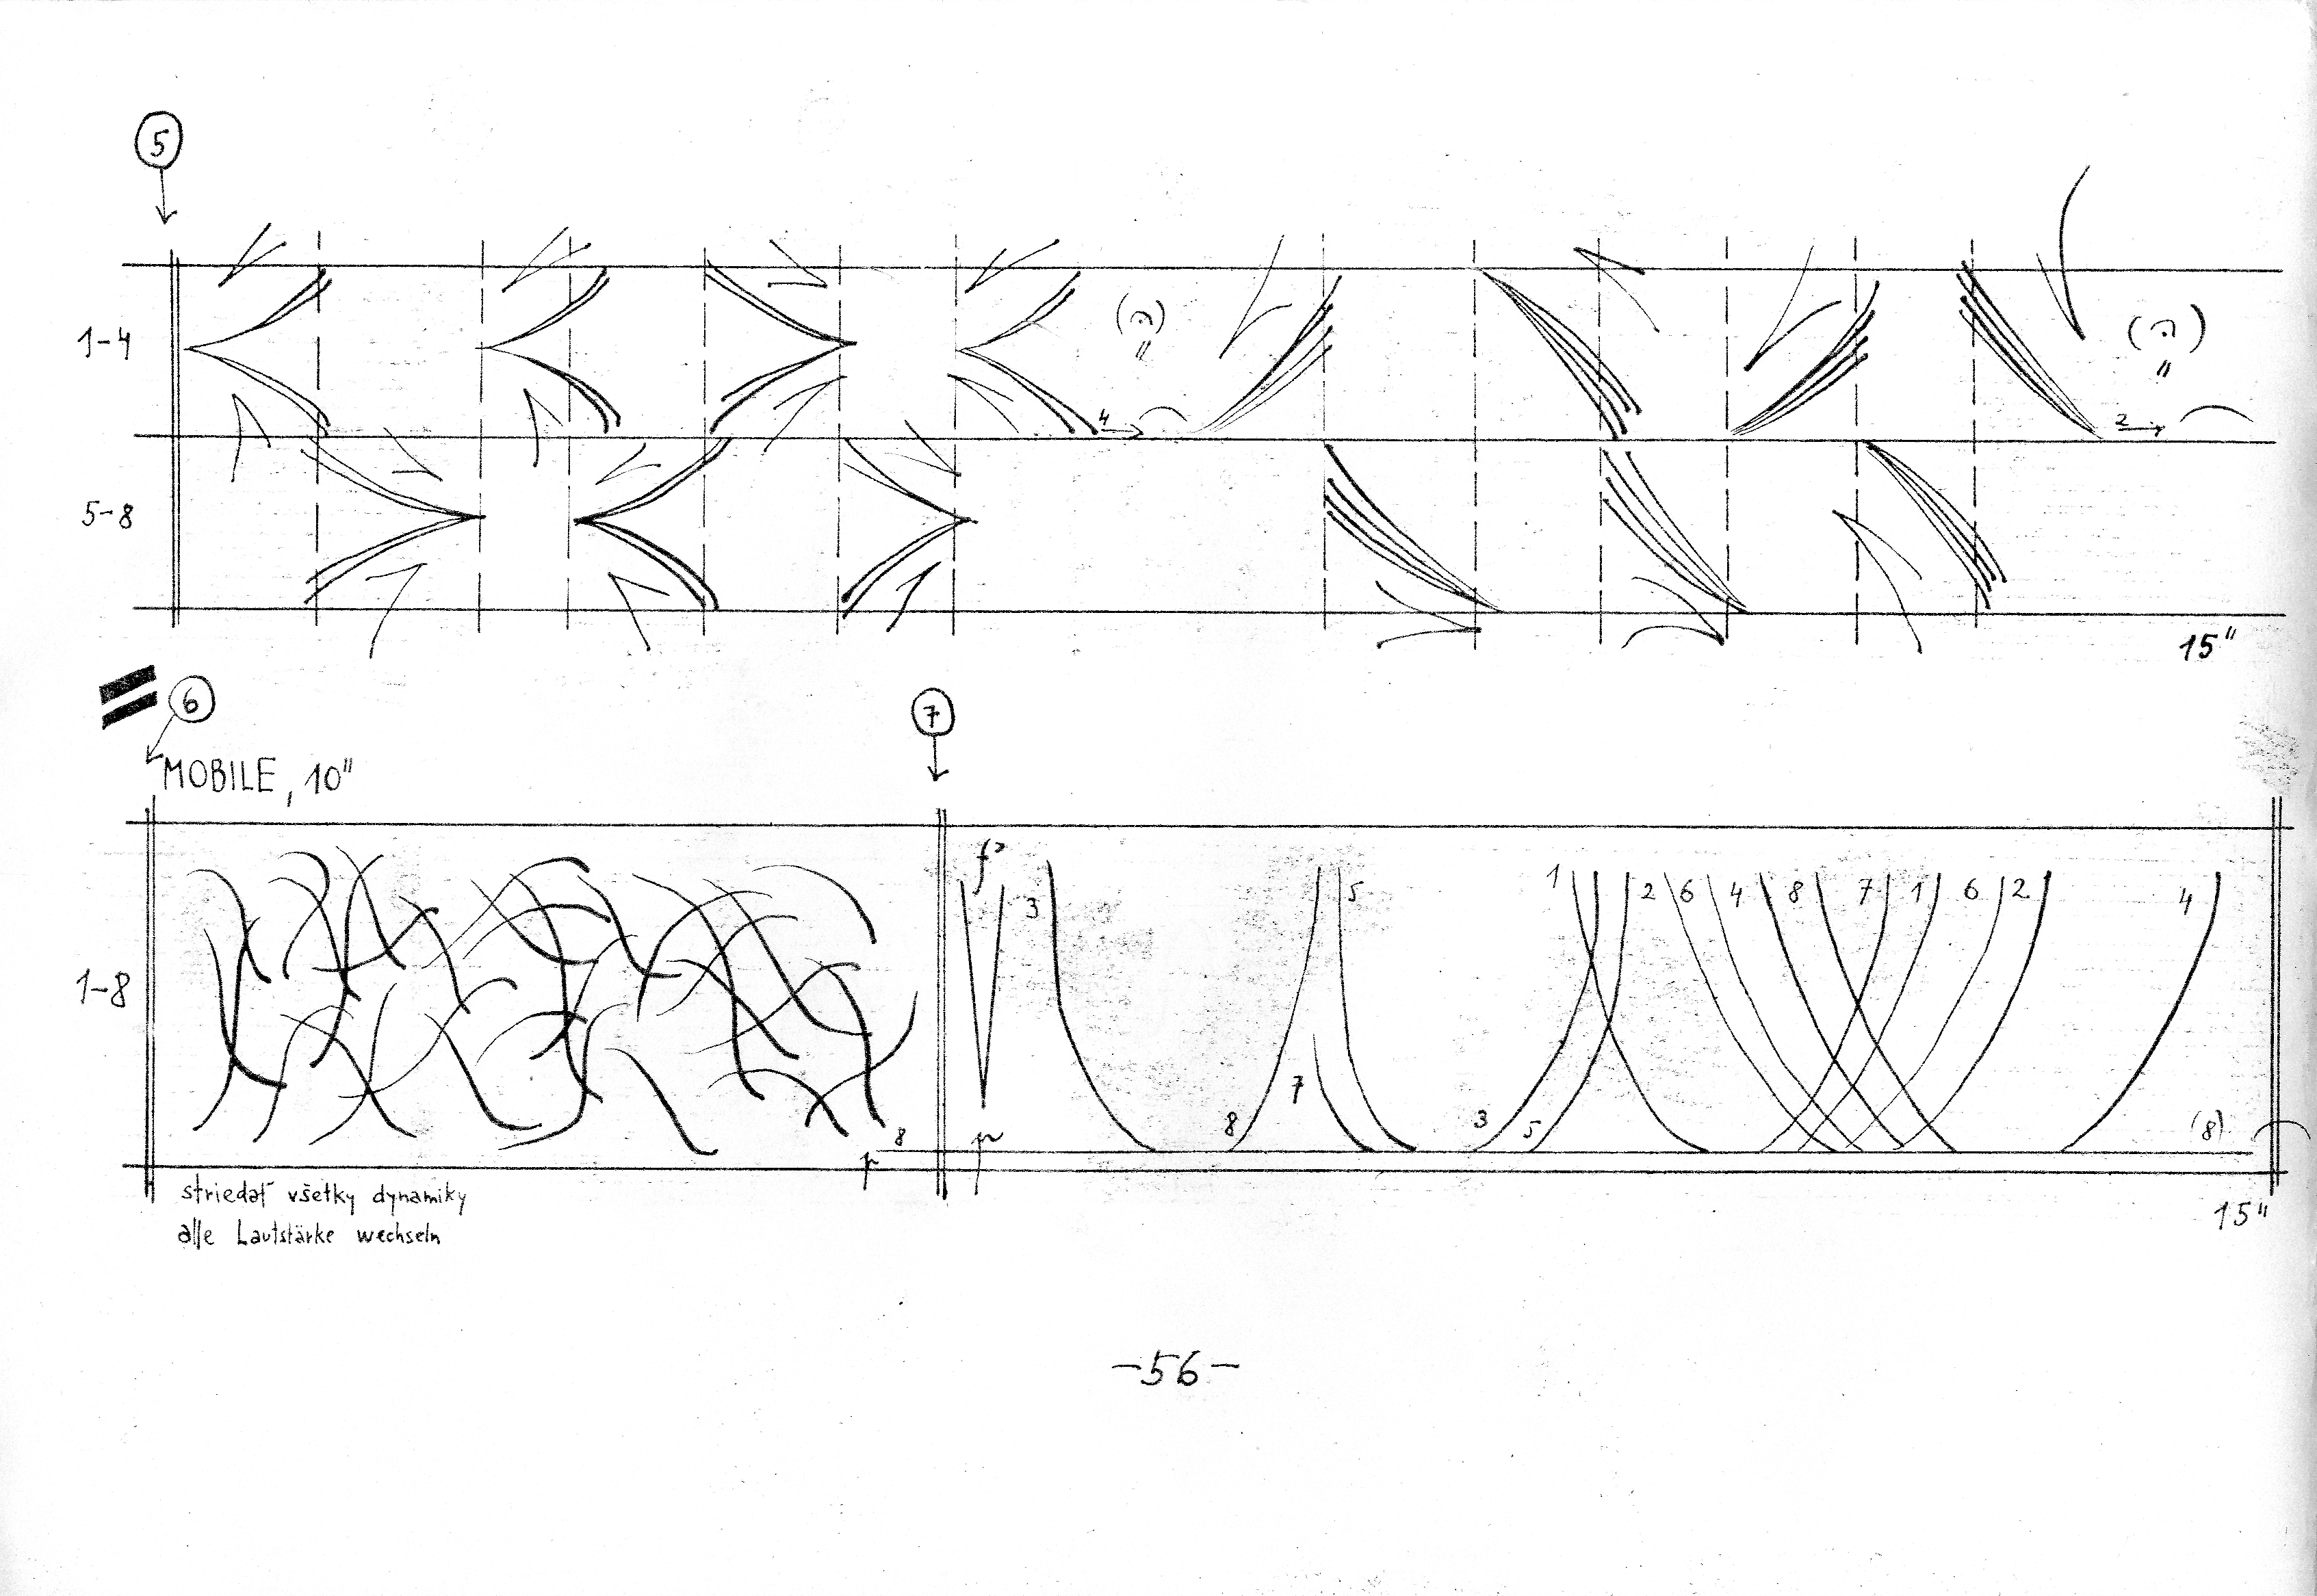 5
1-4
4
2
5-8
15"
6
7
MOBILE, 10"
f
3
5
1 2 6 4 8 7 1 6 2 4
1-8
7
8
3
5
(8)
8
p
p
striedať všetky dynamiky
alle Lautstärke wechseln
15"
-56-